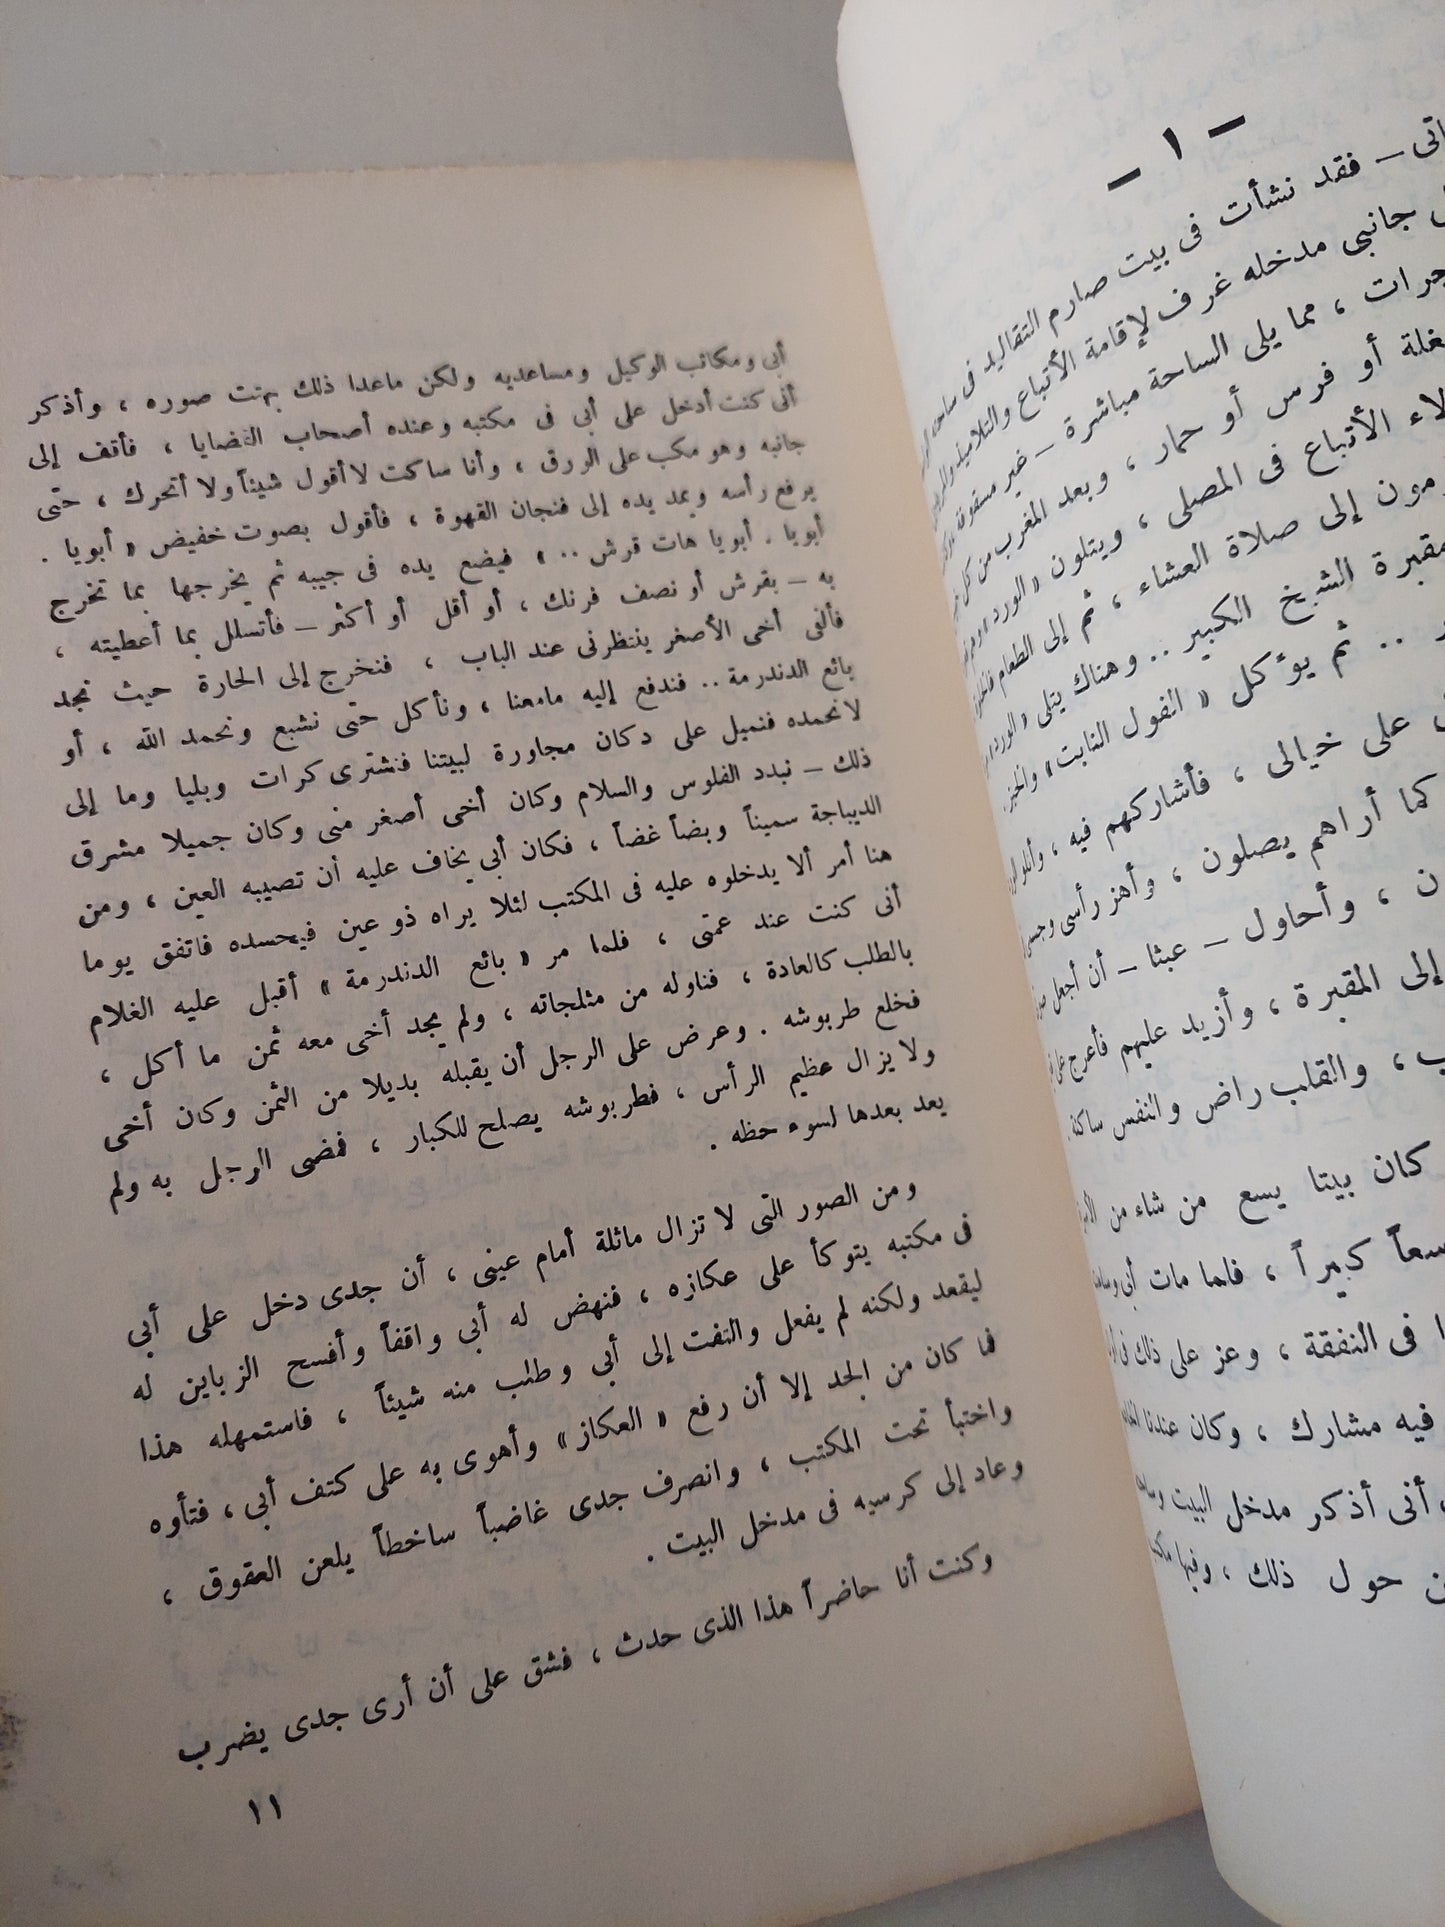 — ١ —
اتى — فقد نشأت فى بيت صارم التقاليد فى ساحه
جانبى مدخله غرف لإقامة الأتباع والتلاميذ
جرات ، مما يلى الساحة مباشرة — غير مسقوفة
غلة أو فرس أو حمار ، وبعد المغرب من كل
لاء الأتباع فى المصلى ، ويتلون « الورد »
مون إلى صلاة العشاء ، ثم إلى الطعام
مقبرة الشيخ الكبير .. وهناك يتلى « الورد
.. ثم يوءكل « الفول النابت » والخبز .
على خيالى ، فأشاركهم فيه ، وأتلو
كما أراهم يصلون ، وأهز رأسى وجسمى
ن ، وأحاول — عبثا — أن أجعل
إلى المقبرة ، وأزيد عليهم فأعرج على
ب ، والقلب راض والنفس ساكنة .
كان بيتا يسع من شاء من
سعاً كبيراً ، فلما مات أبى
ا فى النفقة ، وعز على ذلك فى
فيه مشارك ، وكان عندنا
أنى أذكر مدخل البيت
ن حول ذلك ، وفيها
أبى ومكاتب الوكيل ومساعديه ولكن ماعدا ذلك بهتت صوره ، وأذكر
أنى كنت أدخل على أبى فى مكتبه وعنده أصحاب القضايا ، فأقف إلى
جانبه وهو مكب على الورق ، وأنا ساكت لا أقول شيئاً ولا أتحرك ، حتى
يرفع رأسه ويمد يده إلى فنجان القهوة ، فأقول بصوت خفيض « أبويا .
أبويا . أبويا هات قرش .. » فيضع يده فى جيبه ثم يخرجها بما تخرج
به — بقرش أو نصف فرنك ، أو أقل أو أكثر — فأتسلل بما أعطيته ،
فألفى أخى الأصغر ينتظرنى عند الباب ، فنخرج إلى الحارة حيث نجد
بائع الدندرمة .. فندفع إليه مامعنا ، ونأكل حتى نشبع ونحمد الله ، أو
لانحمده فنميل على دكان مجاورة لبيتنا فنشترى كرات وبليا وما إلى
ذلك — نبدد الفلوس والسلام وكان أخى أصغر منى وكان جميلا مشرق
الديباجة سميناً وبضاً غضاً ، فكان أبى يخاف عليه أن تصيبه العين ، ومن
هنا أمر ألا يدخلوه عليه فى المكتب لئلا يراه ذو عين فيحسده فاتفق يوما
أنى كنت عند عمتى ، فلما مر « بائع الدندرمة » أقبل عليه الغلام
بالطلب كالعادة ، فناوله من مثلجاته ، ولم يجد أخى معه ثمن ما أكل ،
فخلع طربوشه . وعرض على الرجل أن يقبله بديلا من الثمن وكان أخى
ولا يزال عظيم الرأس ، فطربوشه يصلح للكبار ، فمضى الرجل به ولم
يعد بعدها لسوء حظه .
ومن الصور التى لا تزال ماثلة أمام عينى ، أن جدى دخل على أبى
فى مكتبه يتوكأ على عكازه ، فنهض له أبى واقفاً وأفسح الزباين له
ليقعد ولكنه لم يفعل والتفت إلى أبى وطلب منه شيئاً ، فاستمهله هذا
فما كان من الجد إلا أن رفع « العكاز » وأهوى به على كتف أبى ، فتأوه
واختبأ تحت المكتب ، وانصرف جدى غاضباً ساخطاً يلعن العقوق ،
وعاد إلى كرسيه فى مدخل البيت .
وكنت أنا حاضراً هذا الذى حدث ، فشق على أن أرى جدى يضرب
١١